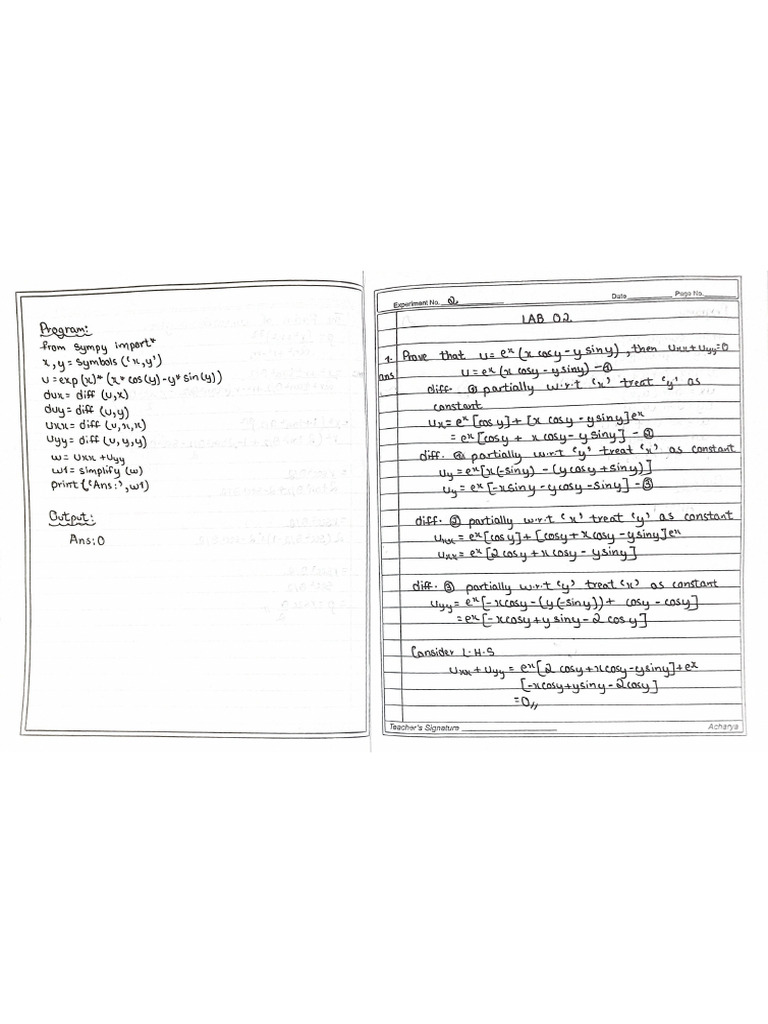 Program:
from sympy import*
x,y = symbols('x,y')
u=exp(x)*(x*cos(y)-y*sin(y))
dux = diff (u,x)
duy= diff (u,y)
uxx= diff (u,x,x)
uyy= diff (u,y,y)
w= uxx+uyy
w1= simplify (w)
print('Ans:',w1)
Output:
Ans:0
Experiment No. 2 Date Page No.
LAB 02
1. Prove that u= eˣ(x cosy-y siny), then uxx+uyy=0
ans u=eˣ(x cosy-ysiny) -①
diff. ① partially w.r.t 'x' treat 'y' as
constant
ux= eˣ[cosy]+[x cosy-ysiny]eˣ
= eˣ[cosy + x cosy-ysiny] -②
diff. ① partially w.r.t 'y' treat 'x' as constant
uy= eˣ[x(-siny) - (ycosy+siny)]
uy= eˣ[-xsiny-ycosy-siny] -③
diff. ② partially w.r.t 'x' treat 'y' as constant
uxx= eˣ[cosy]+[cosy+xcosy-ysiny]eˣ
uxx= eˣ[2cosy+xcosy-ysiny]
diff. ③ partially w.r.t 'y' treat 'x' as constant
uyy= eˣ[-xcosy-(y(-siny))+ cosy-cosy]
=eˣ[-xcosy+ysiny-2cosy]
Consider L.H.S
uxx+uyy = eˣ[2 cosy+xcosy-ysiny]+eˣ
[-xcosy+ysiny-2cosy]
=0,,
Teacher's Signature Acharya